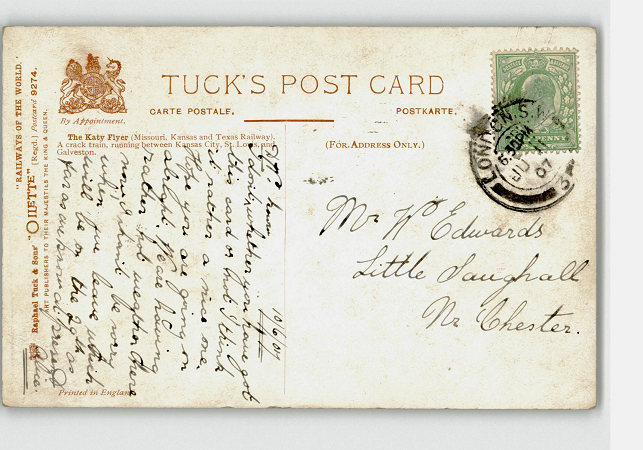 TUCK'S POST CARD
By Appointment.
CARTE POSTALE.
POSTKARTE.
The Katy Flyer (Missouri, Kansas and Texas Railway).
A crack train, running between Kansas City, St. Louis, and
Galveston.
(FOR ADDRESS ONLY.)
"RAILWAYS OF THE WORLD."
Raphael Tuck & Sons' "OILETTE" (Regd.) Postcard 9274.
ART PUBLISHERS TO THEIR MAJESTIES THE KING & QUEEN.
LONDON. S.W.
JU
07
PENNY
10/6/07
don't whether you have got
this card or but I think
it rather a nice one.
Hope you are going on
alright. We are having
rather weather here
now, I shall be very
when we leave which
will be on the as
far as we know at present
Mr W Edwards
Little Saughall
Nr Chester.
Printed in England